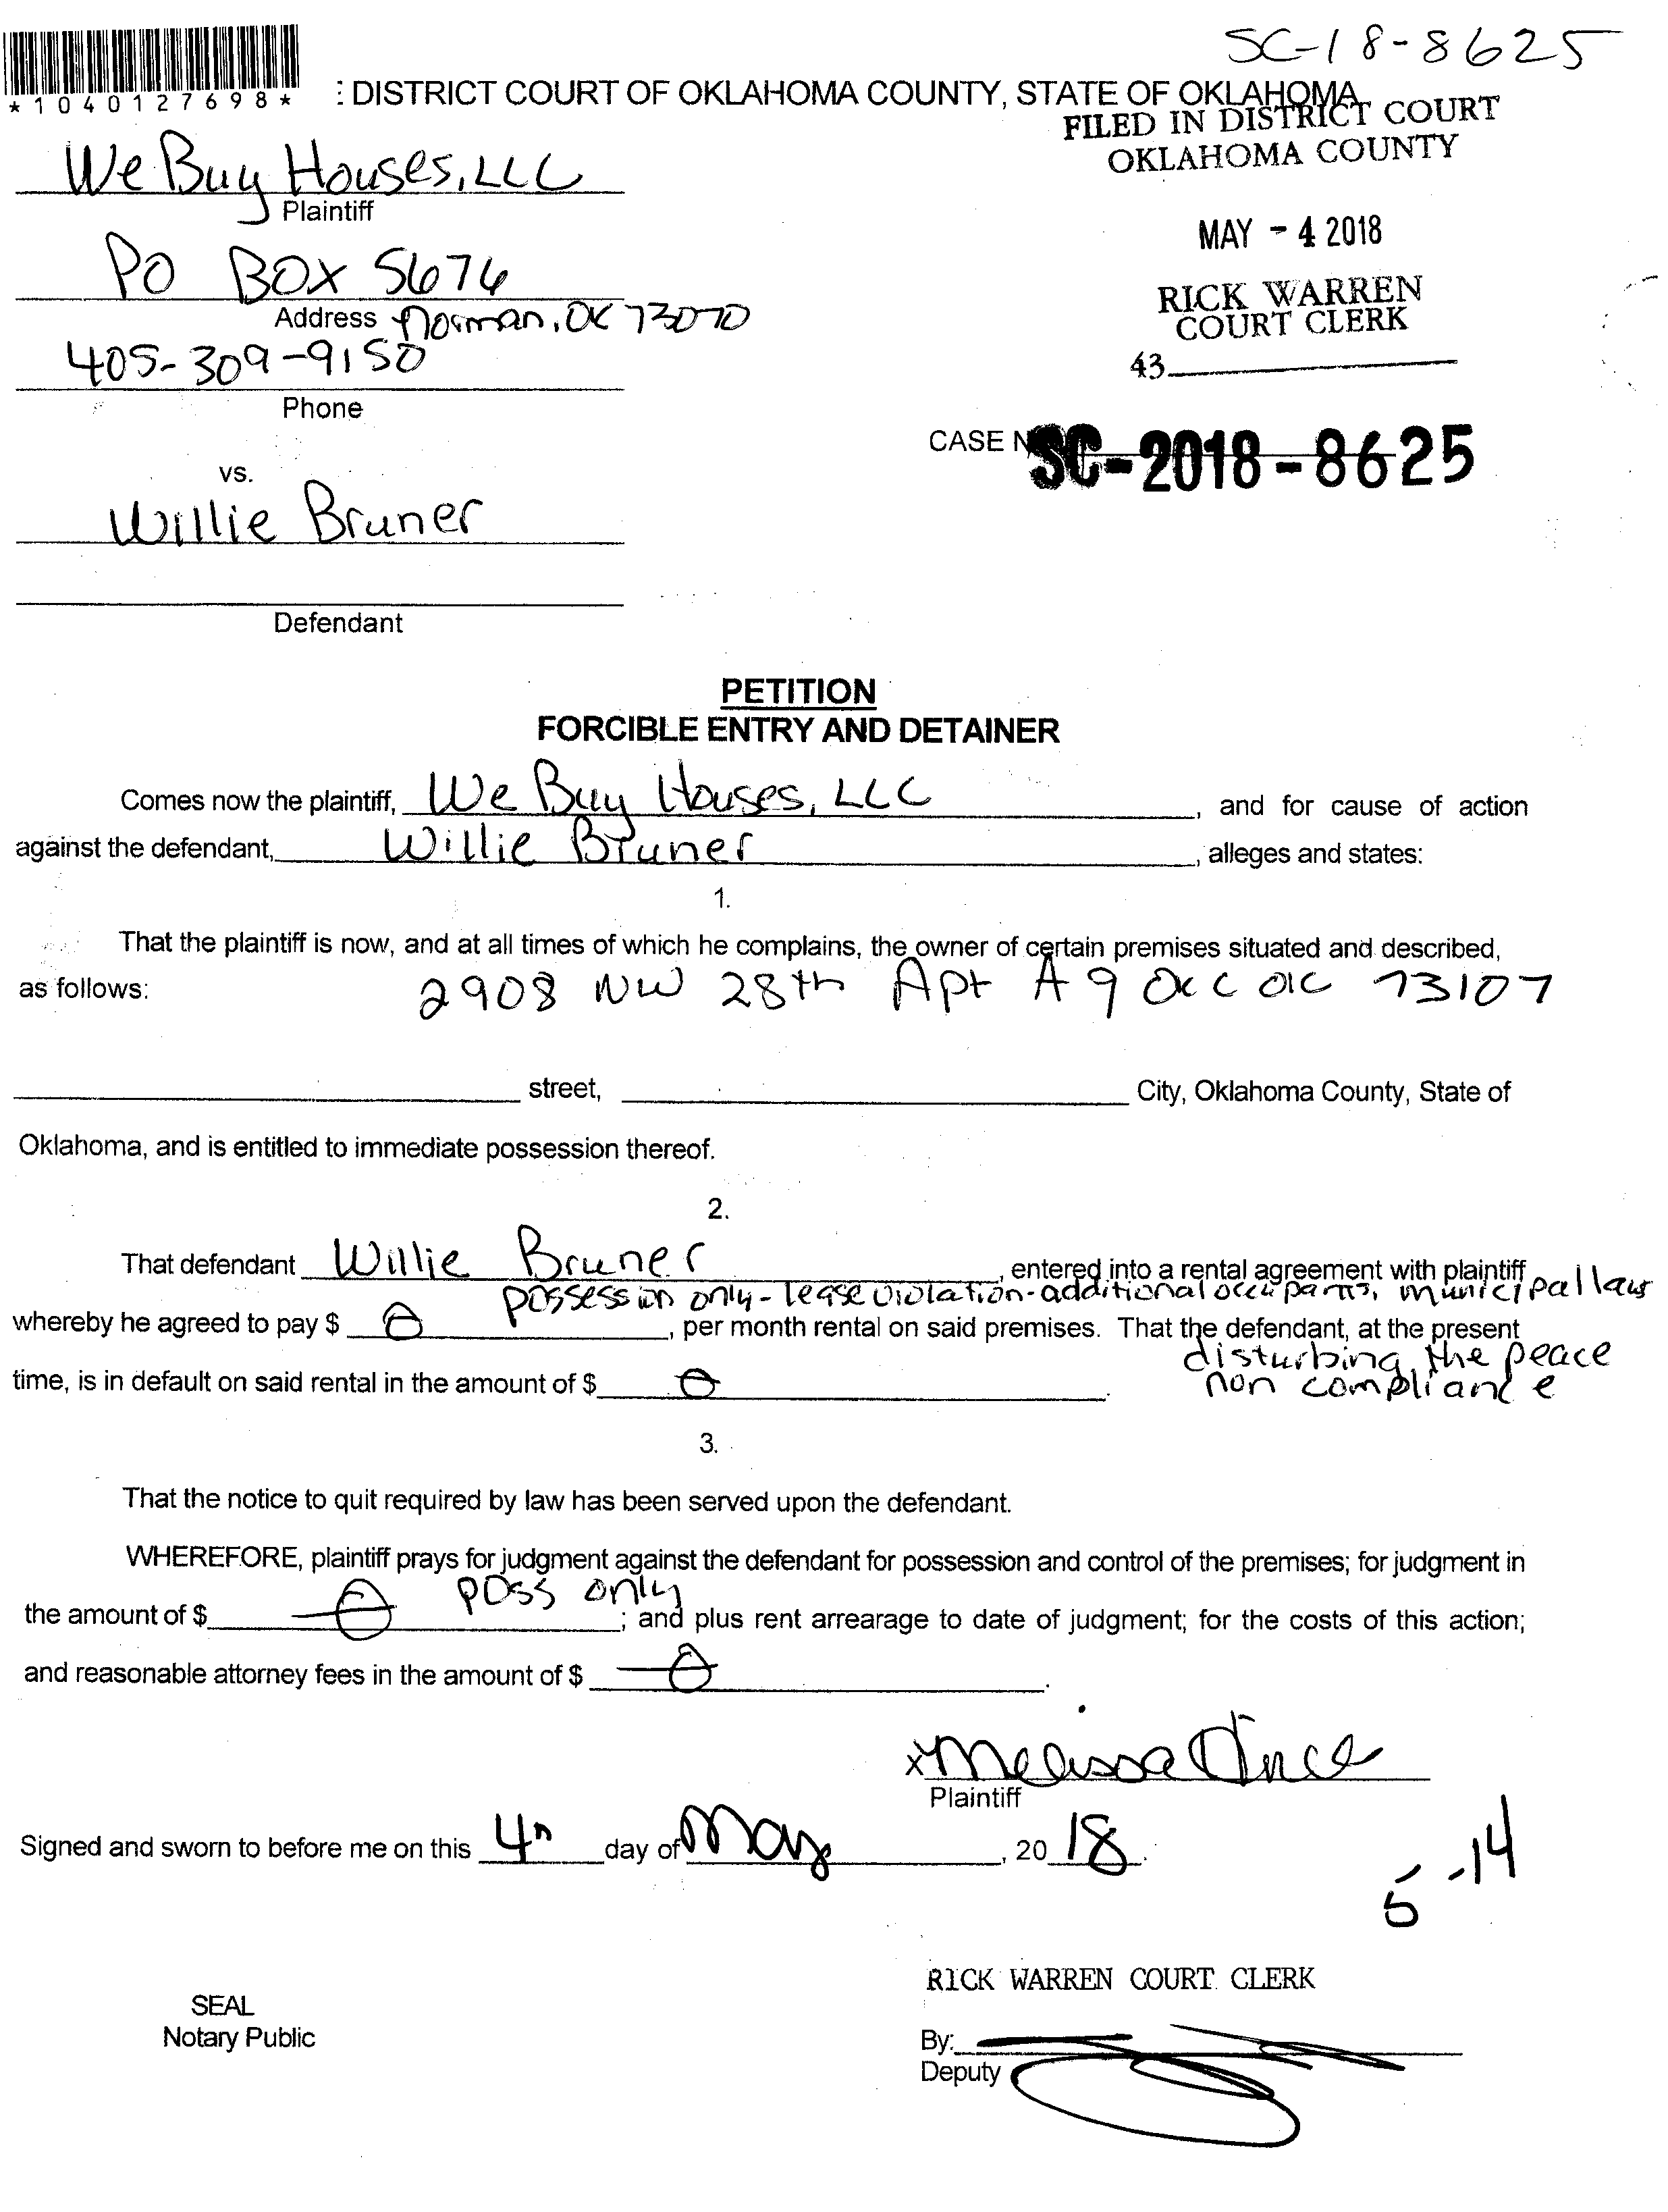 SC-18-8625
*1040127698*
: DISTRICT COURT OF OKLAHOMA COUNTY, STATE OF OKLAHOMA
FILED IN DISTRICT COURT
OKLAHOMA COUNTY
We Buy Houses, LLC
Plaintiff
MAY - 4 2018
PO BOX 5676
Address Norman, OK 73070
RICK WARREN
COURT CLERK
405-309-9150
43
Phone
CASE N SC-2018-8625
vs.
Willie Bruner
Defendant
PETITION
FORCIBLE ENTRY AND DETAINER
Comes now the plaintiff, We Buy Houses, LLC, and for cause of action
against the defendant, Willie Bruner, alleges and states:
1.
That the plaintiff is now, and at all times of which he complains, the owner of certain premises situated and described,
as follows: 2908 NW 28th Apt A9 OKC OK 73107
street, City, Oklahoma County, State of
Oklahoma, and is entitled to immediate possession thereof.
2.
That defendant Willie Bruner, entered into a rental agreement with plaintiff
possession only - lease violation - additional occupants, municipal law
whereby he agreed to pay $ 0, per month rental on said premises. That the defendant, at the present
disturbing the peace
time, is in default on said rental in the amount of $ 0.
non compliance
3.
That the notice to quit required by law has been served upon the defendant.
WHEREFORE, plaintiff prays for judgment against the defendant for possession and control of the premises; for judgment in
poss only
the amount of $ 0; and plus rent arrearage to date of judgment; for the costs of this action;
and reasonable attorney fees in the amount of $ 0.
x Melissa
Plaintiff
Signed and sworn to before me on this 4th day of May, 2018.
5-14
RICK WARREN COURT CLERK
SEAL
Notary Public
By:
Deputy